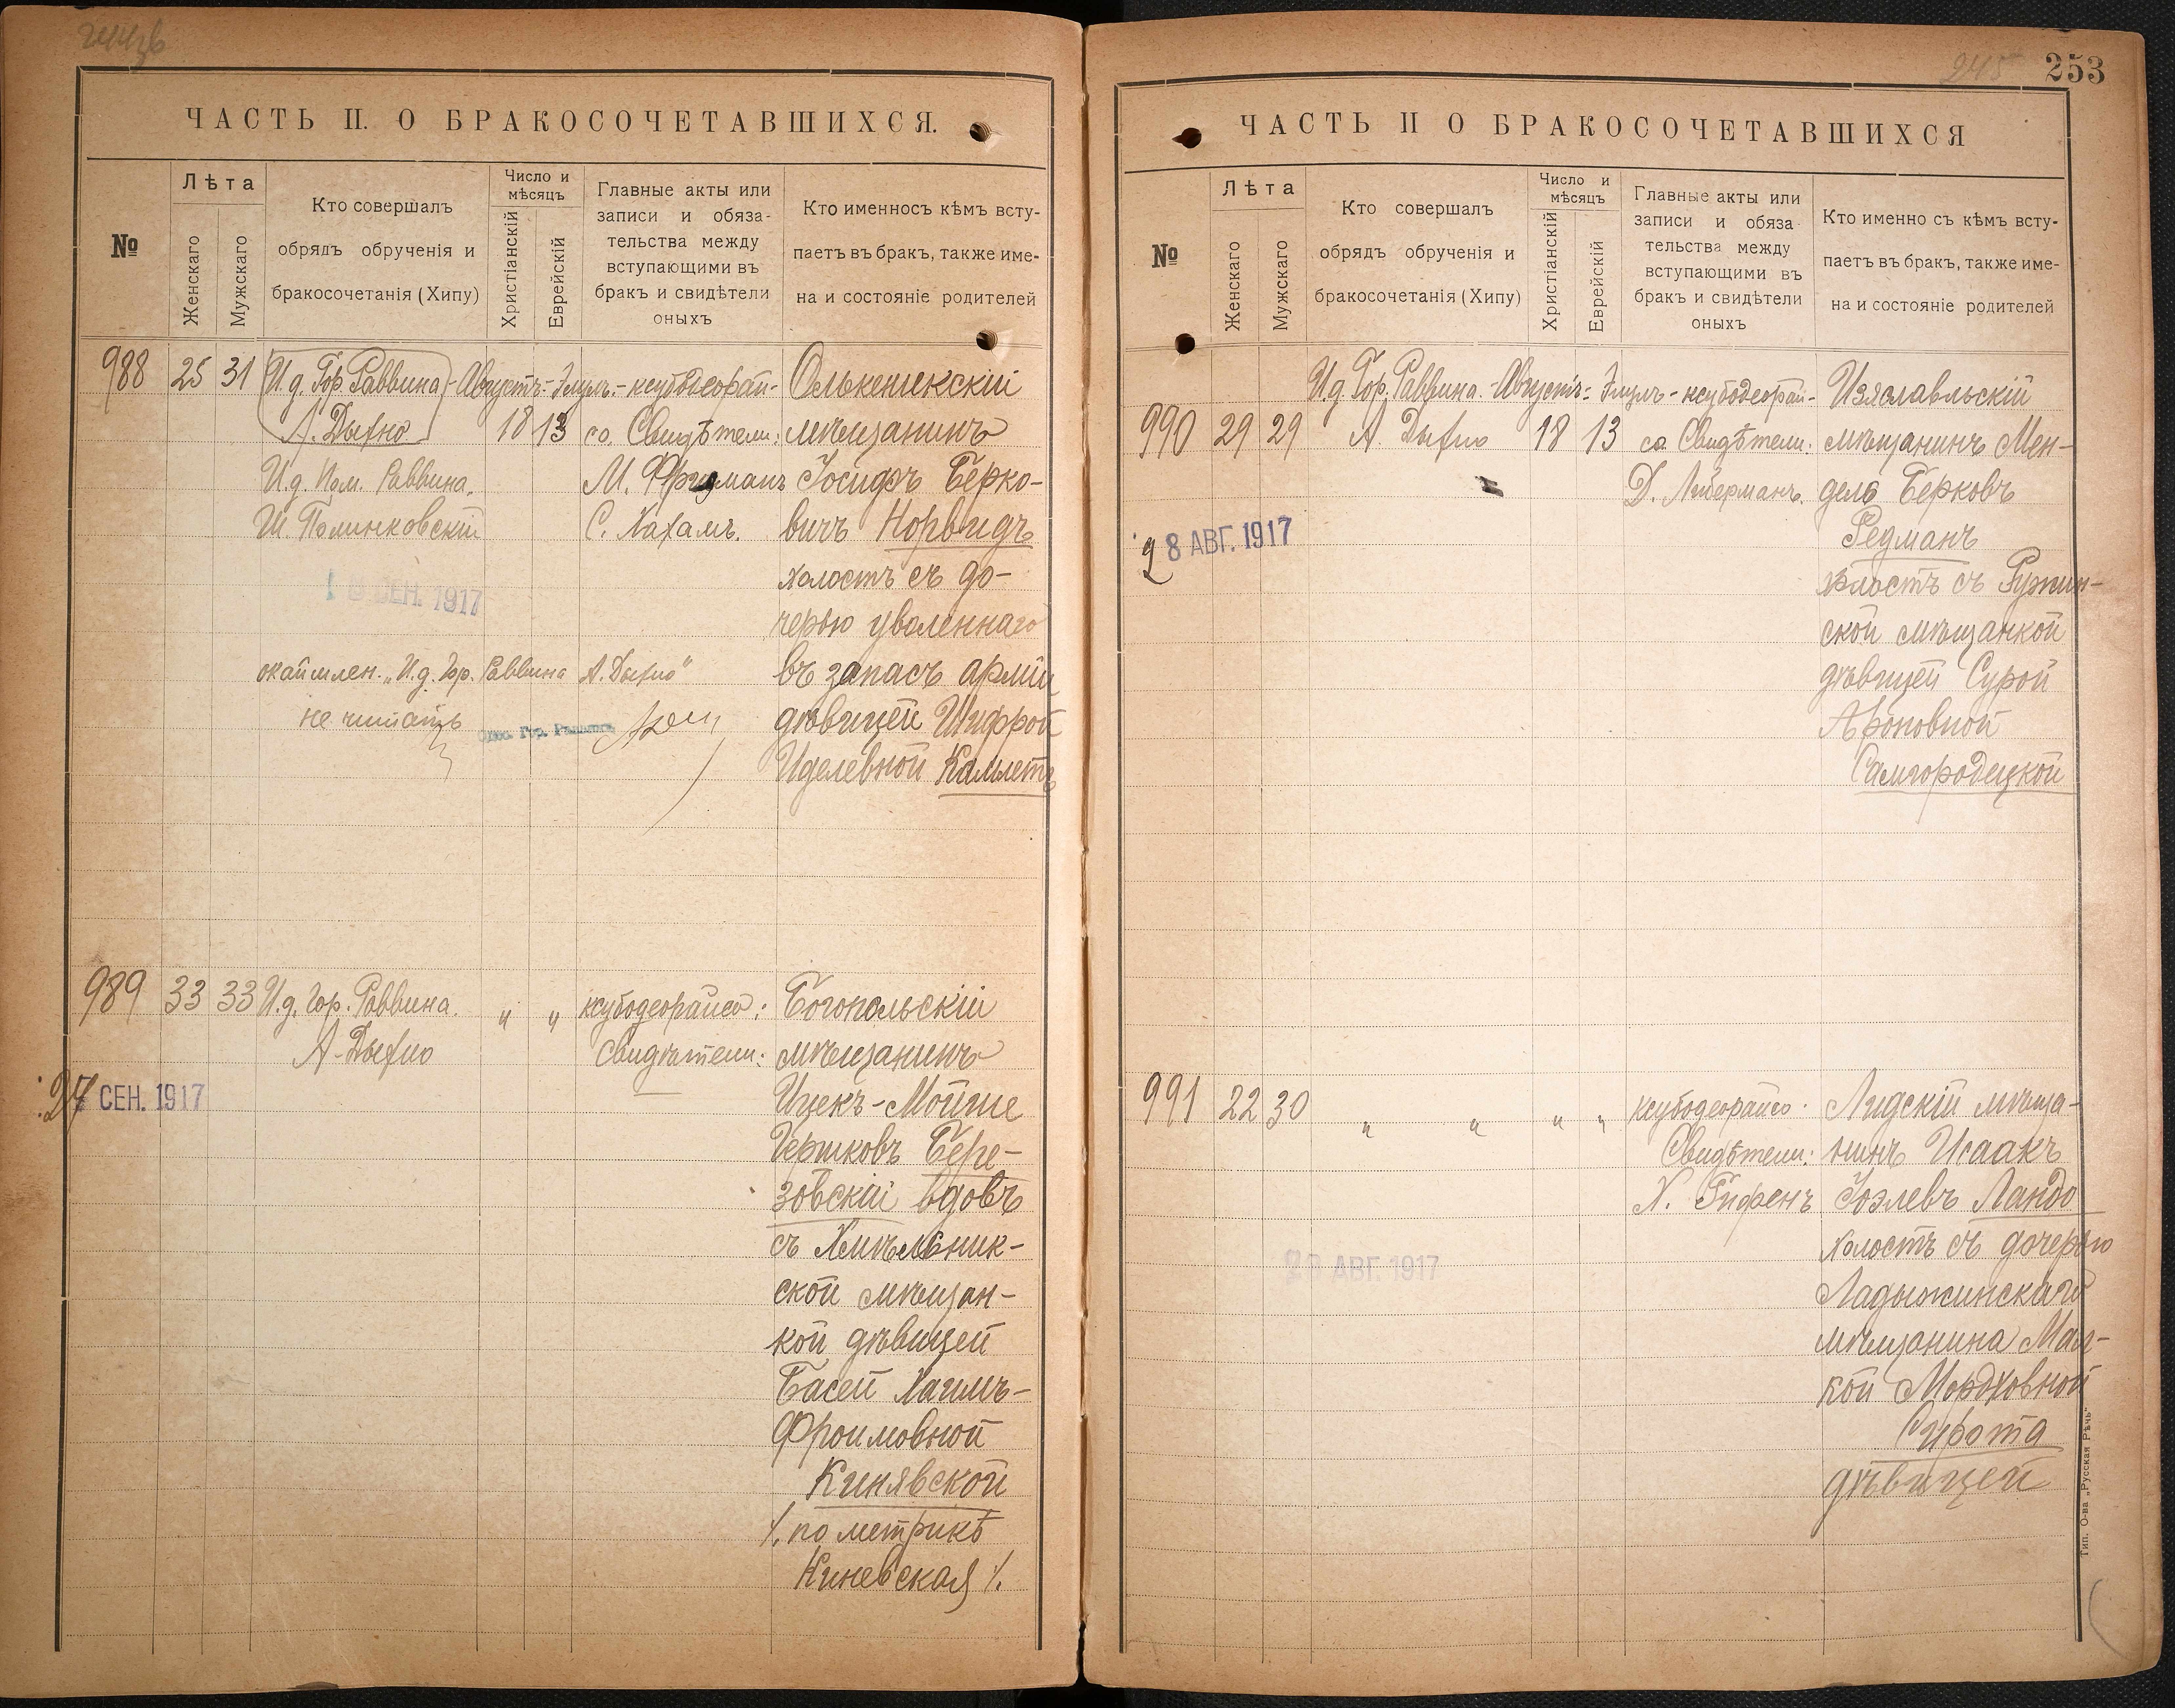 ЧАСТЬ II. О БРАКОСОЧЕТАВШИХСЯ.
№
Лѣта
Женскаго
Мужскаго
Кто совершалъ
обрядъ обрученія и
бракосочетанія (Хипу)
Число и
мѣсяцъ
Христіанскій
Еврейскій
Главные акты или
записи и обяза-
тельства между
вступающими въ
бракъ и свидѣтели
оныхъ
Кто именносъ кѣмъ всту-
паетъ въ бракъ, также име-
на и состояніе родителей
988 25 31
И.д. Гор. Раввина
А. Дыхно
И.д. Пом. Раввина
Ш. Полинковскій
СЕН. 1917
Августъ - Элулъ -
18 13
ксубодеорай-
са. Свидѣтели:
М. Фридманъ
С. Хахамъ.
Олькеникскій
мѣщанинъ
Іосифъ Берко-
вичъ Норвидъ
холостъ съ до-
черью уволеннаго
въ запасъ арміи
дѣвицей Шифрой
Иделевной Камлетъ
окаймлен. „И.д. Гор. Раввина А. Дыхно"
не читать
989 33 33
И.д. Гор. Раввина.
А. Дыхно
" "
ксубодеорайса:
Свидѣтели:
27 СЕН. 1917
Богопольскій
мѣщанинъ
Ицекъ-Мойше
Гершковъ Бере-
зовскій вдовъ
съ Хмѣльник-
ской мѣщан-
кой дѣвицей
Басей Хаимъ-
Фроимовной
Кинявской
/. по метрикѣ
Киневская /.
245 253
ЧАСТЬ II О БРАКОСОЧЕТАВШИХСЯ
№
Лѣта
Женскаго
Мужскаго
Кто совершалъ
обрядъ обрученія и
бракосочетанія (Хипу)
Число и
мѣсяцъ
Христіанскій
Еврейскій
Главные акты или
записи и обяза-
тельства между
вступающими въ
бракъ и свидѣтели
оныхъ
Кто именно съ кѣмъ всту-
паетъ въ бракъ, также име-
на и состояніе родителей
990 29 29
И.д. Гор. Раввина.
А. Дыхно
Августъ - Элулъ -
18 13
ксубодеорай-
са Свидѣтели:
Д. Либерманъ.
28 АВГ. 1917
Изяславльскій
мѣщанинъ Мен-
дель Берковъ
Редманъ
холостъ съ Ружин-
ской мѣщанкой
дѣвицей Сурой
Ароновной
Самгородецкой
991 22 30
" " " "
ксубодеорайса:
Свидѣтели:
Х. Гифенъ
АВГ. 1917
Лидскій мѣща-
нинъ Исаакъ
Іоэлевъ Ландо
холостъ съ дочерью
Ладыжинскаго
мѣщанина Мал-
кой Мордховной
Сирота
дѣвицей
Тип. О-ва „Русская Рѣчь"